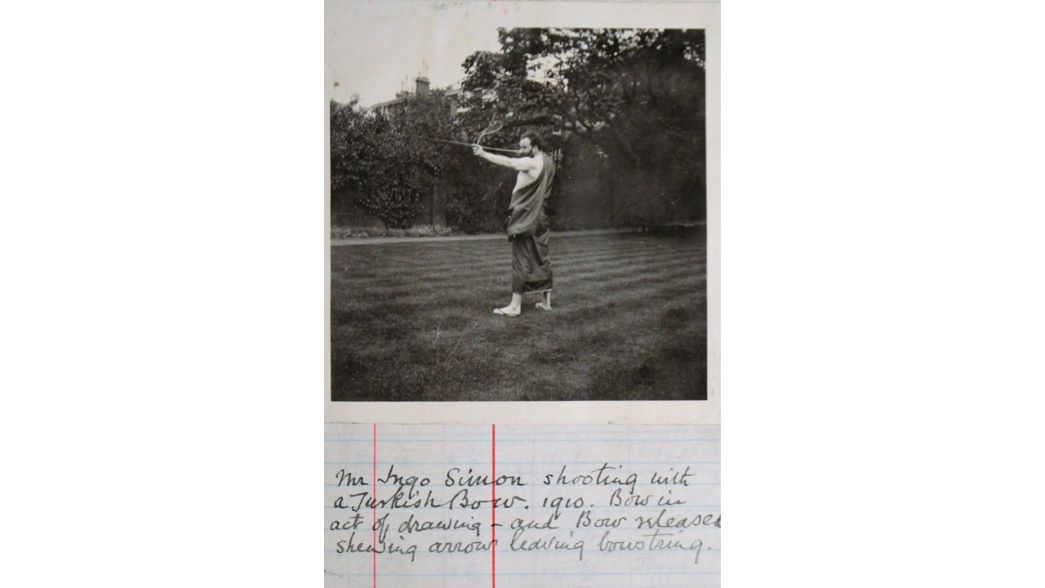 Mr Ingo Simon shooting with
a Turkish Bow. 1910. Bow in
act of drawing - and Bow released
shewing arrow leaving bowstring.